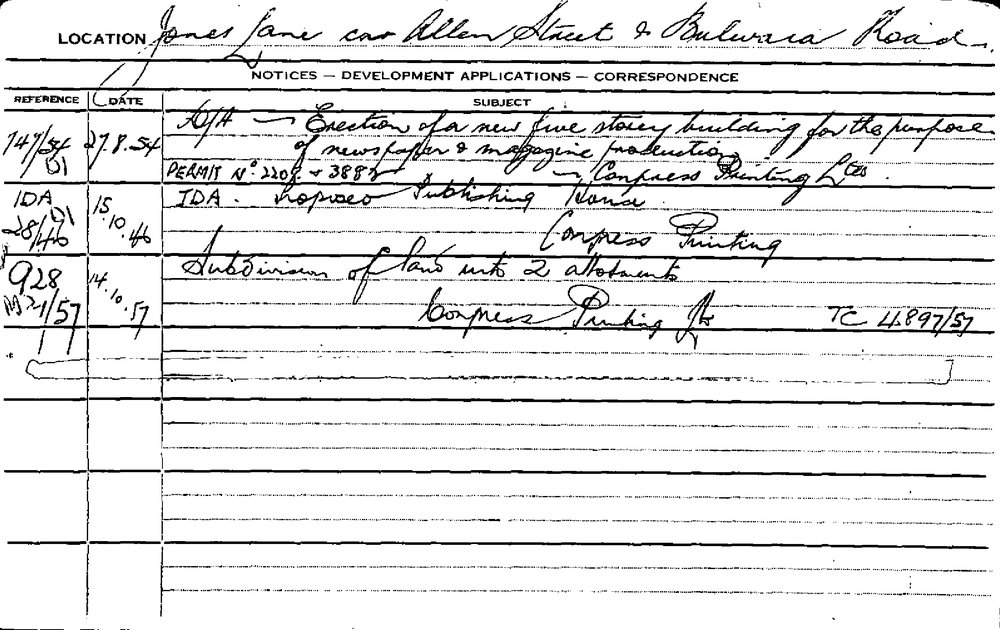 LOCATION Jones Lane cnr Allen Street & Bulwara Road.
NOTICES — DEVELOPMENT APPLICATIONS — CORRESPONDENCE
REFERENCE DATE SUBJECT
747/54 27.8.54 — Erection of a new five storey building for the purpose
D1 of newspaper & magazine production
PERMIT No. 2208 & 3882 — Conpress Printing Ltd.
IDA 15. IDA. Publishing House
28/46 D1 10.46 Conpress Printing
928 14. Subdivision of land into 2 allotments
/57 10.57 Conpress Printing TC 4897/57